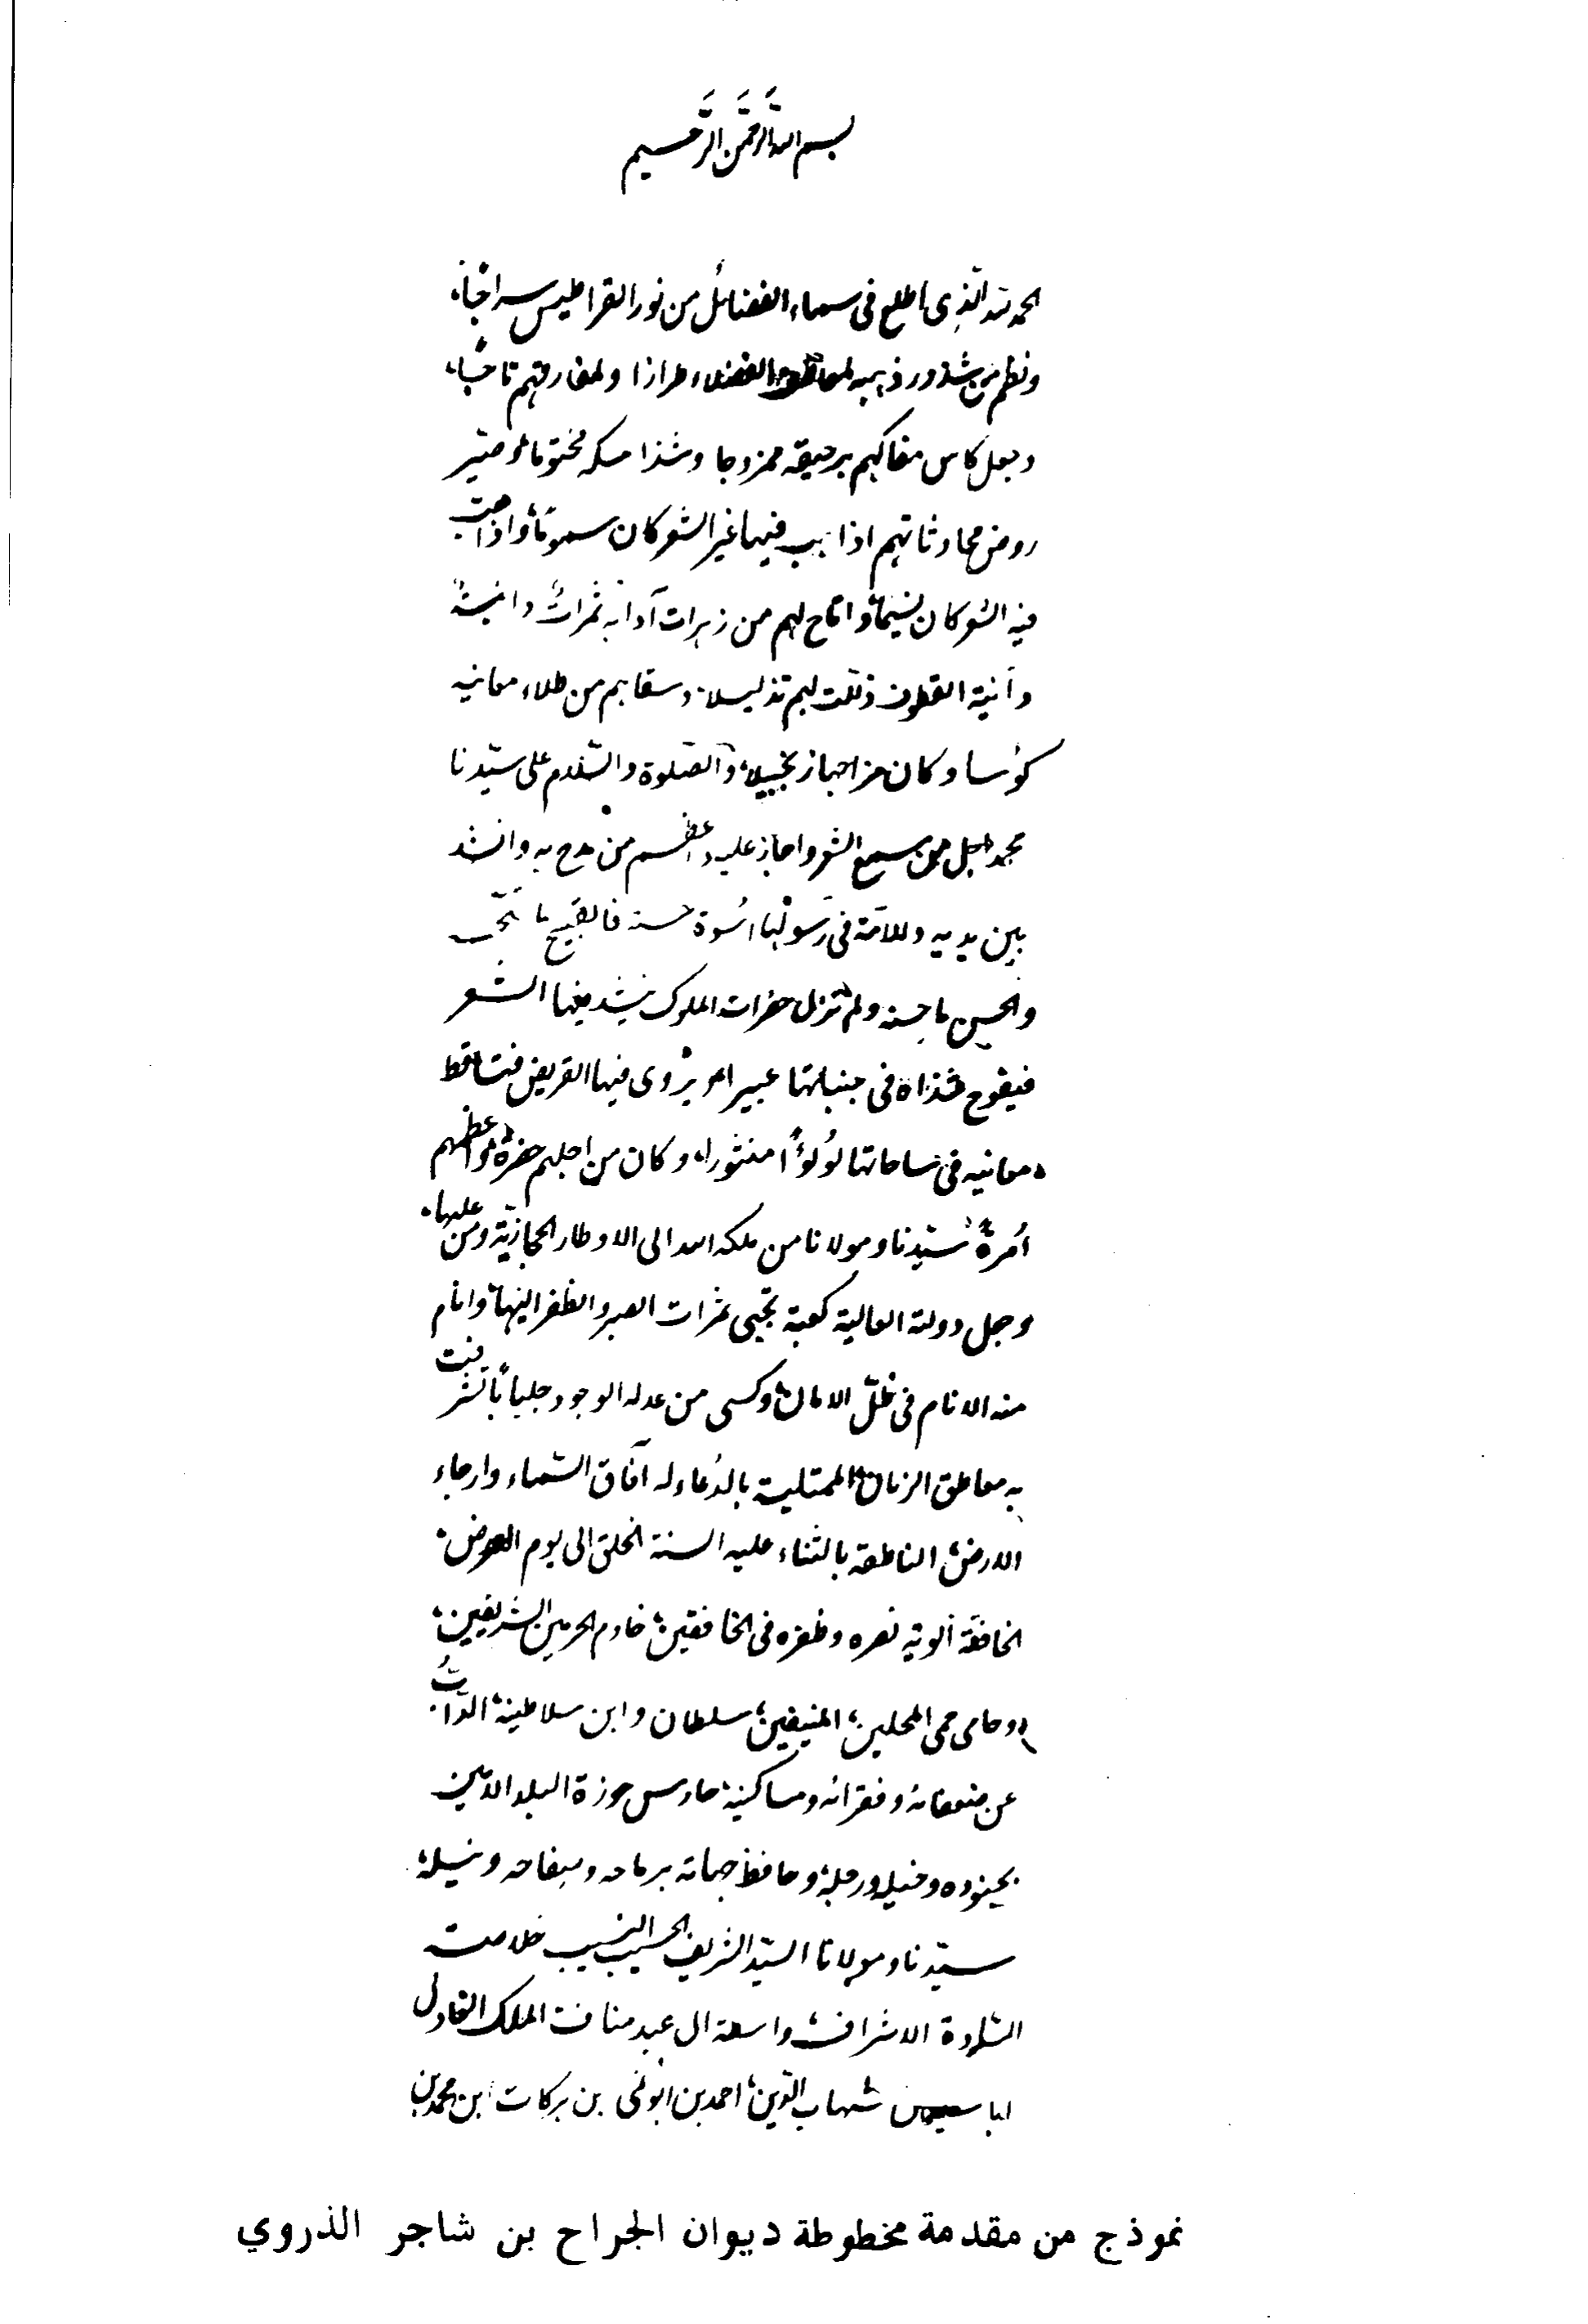 بسم الله الرحمن الرحيم
الحمد لله الذى اطلع فى سماء الفضائل من نور القراطيس سراجًا،
ونظم من شذور ذهبه لمعاطف الفضلاء طرازا ولمفارقهم تاجًا،
وجعل كاس مفاكهم برحيقه ممزوجا وشذا مسكه مختوما وصير
روض محادثاتهم اذا هب فيها غير الشعر كان سموما، واذا هب
فيه الشعر كان نسيما، واتاح لهم من زهرات آدابه ثمرات دانية
وآنية القطوف ذللت لهم تذليلا وسقاهم من طلاء معانيه
كوسا وكان مزاجها زنجبيلا، والصلوة والسّلام على سيّدنا
محمد اجل من سمع الشعر واجاز عليه واعظم من مدح به وانشد
بين يديه وللامّة فى رسولها اسُوة حسنة فالقبيح ما قبّحه
والحسن ما حسنه ولم تزل حضرات الملوك ينشد فيها الشعر
فيفوح شذاه فى جنباتها عبيرا، ويروى فيها القريض فتساقط
معانيه فى ساحاتها لُؤلُؤًا منثورا، وكان من اجلهم حضرة، واعظمهم
اُمرةً، سيّدنا ومولانا من ملكه الله الاوطار الحجازيّة ومن عليها،
وجعل دولته العالية كعبة تجبى ثمرات العز والظفر اليها، وانام
منه الانام فى ظلّ الامان، وكسى من عدله الوجود جلبابًا تشرفت
به معاطف الزمان، الممتلية بالدُعاء له آفاق السّماء وارجاء
الارض، الناطقة بالثناء عليه السنة الخلق الى يوم العرض،
الخافقة الوية نصره وظفره فى الخافقين، خادم الحرمين الشريفين،
وحامى حمى المحلين، المنيفين، سلطان وابن سلاطينه، الذّابُّ
عن ضعفائه وفقرائه ومساكينه، حارس حوزة البلد الامين
بجنوده وخيله ورجله، وحافظ جهاته برماحه وصفاحه ونبله،
سيّدنا ومولانا السيّد الشريف الحسيب النسيب خلاصة
السّادة الاشراف، وال عبد مناف الملك العادل
شهاب الدّين، احمد بن ابونمى بن بركات ابن محمد بن
نموذج من مقدمة مخطوطة ديوان الجراح بن شاجر الذروي